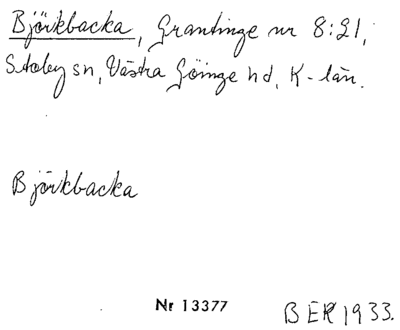 Björkbacka, Grantinge nr 8:21,
Stoby sn, Västra Göinge hd, K-län.
Björkbacka
Nr 13377
BER 1933.